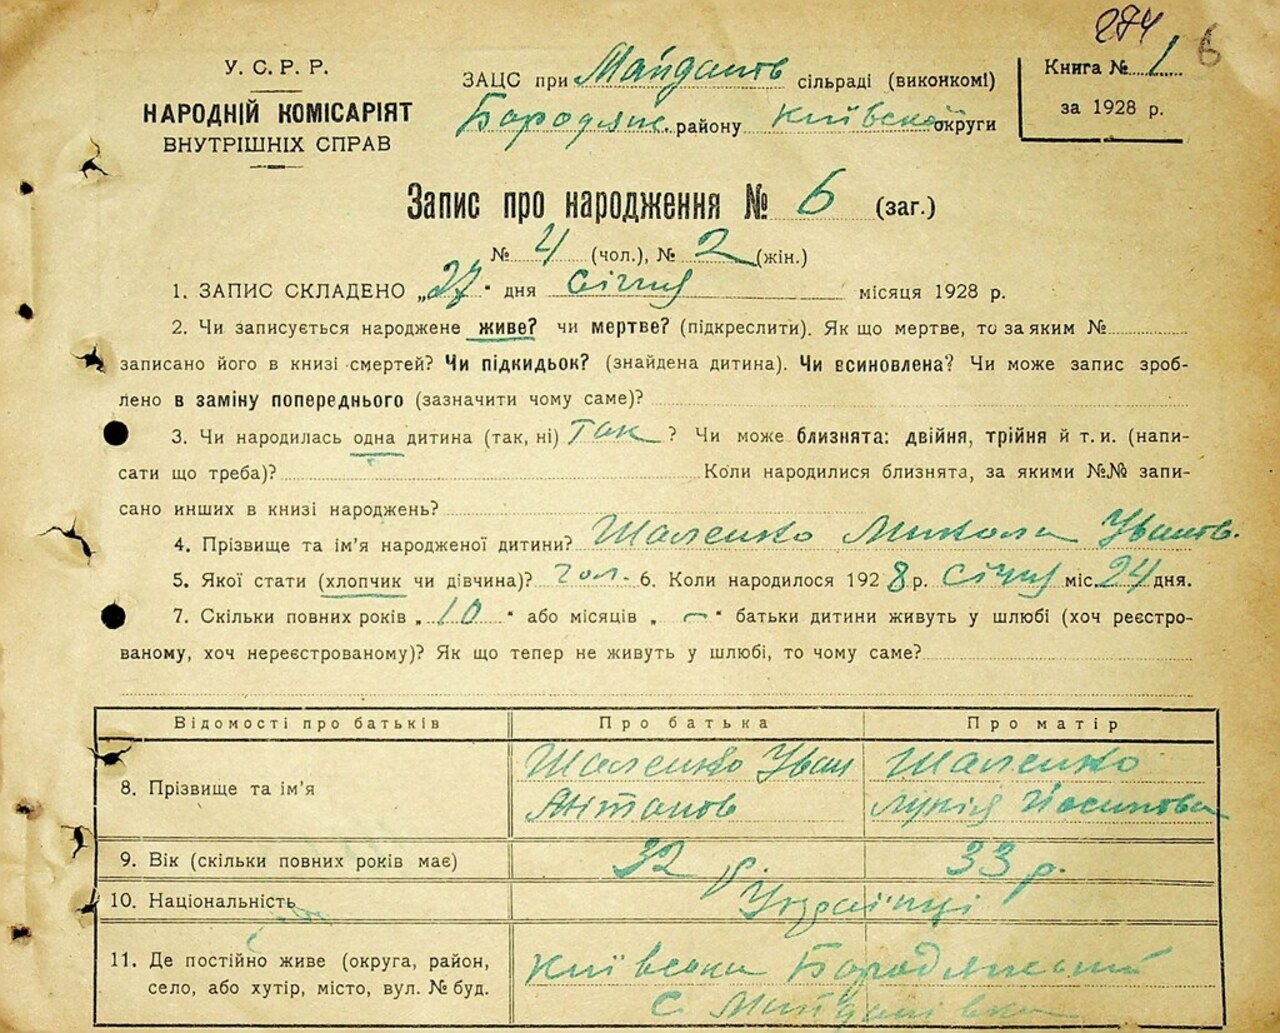 274 6
У. С. Р. Р.
НАРОДНІЙ КОМІСАРІЯТ
ВНУТРІШНІХ СПРАВ
ЗАЦС при Майданів сільраді (виконкомі)
Бородянс. району Київської округи
Книга № 1
за 1928 р.
Запис про народження № 6 (заг.)
№ 4 (чол.), № 2 (жін.)
1. ЗАПИС СКЛАДЕНО „27" дня січня місяця 1928 р.
2. Чи записується народжене живе? чи мертве? (підкреслити). Як що мертве, то за яким №
записано його в книзі смертей? Чи підкидьок? (знайдена дитина). Чи всиновлена? Чи може запис зроб-
лено в заміну попереднього (зазначити чому саме)?
3. Чи народилась одна дитина (так, ні) так ? Чи може близнята: двійня, трійня й т. и. (напи-
сати що треба)? Коли народилися близнята, за якими №№ запи-
сано инших в книзі народжень?
4. Прізвище та ім'я народженої дитини? Шаленко Микола Іванів.
5. Якої стати (хлопчик чи дівчина)? чол. 6. Коли народилося 1928 р. січня міс. 24 дня.
7. Скільки повних років „10" або місяців „—" батьки дитини живуть у шлюбі (хоч реєстро-
ваному, хоч нереєстрованому)? Як що тепер не живуть у шлюбі, то чому саме?
Відомості про батьків Про батька Про матір
8. Прізвище та ім'я Шаленко Іван Шаленко
Антонов Лукія Йосипова
9. Вік (скільки повних років має) 32 р. 33 р.
10. Національність Українці
11. Де постійно живе (округа, район, Київська Бородянський
село, або хутір, місто, вул. № буд. с. Майданівка